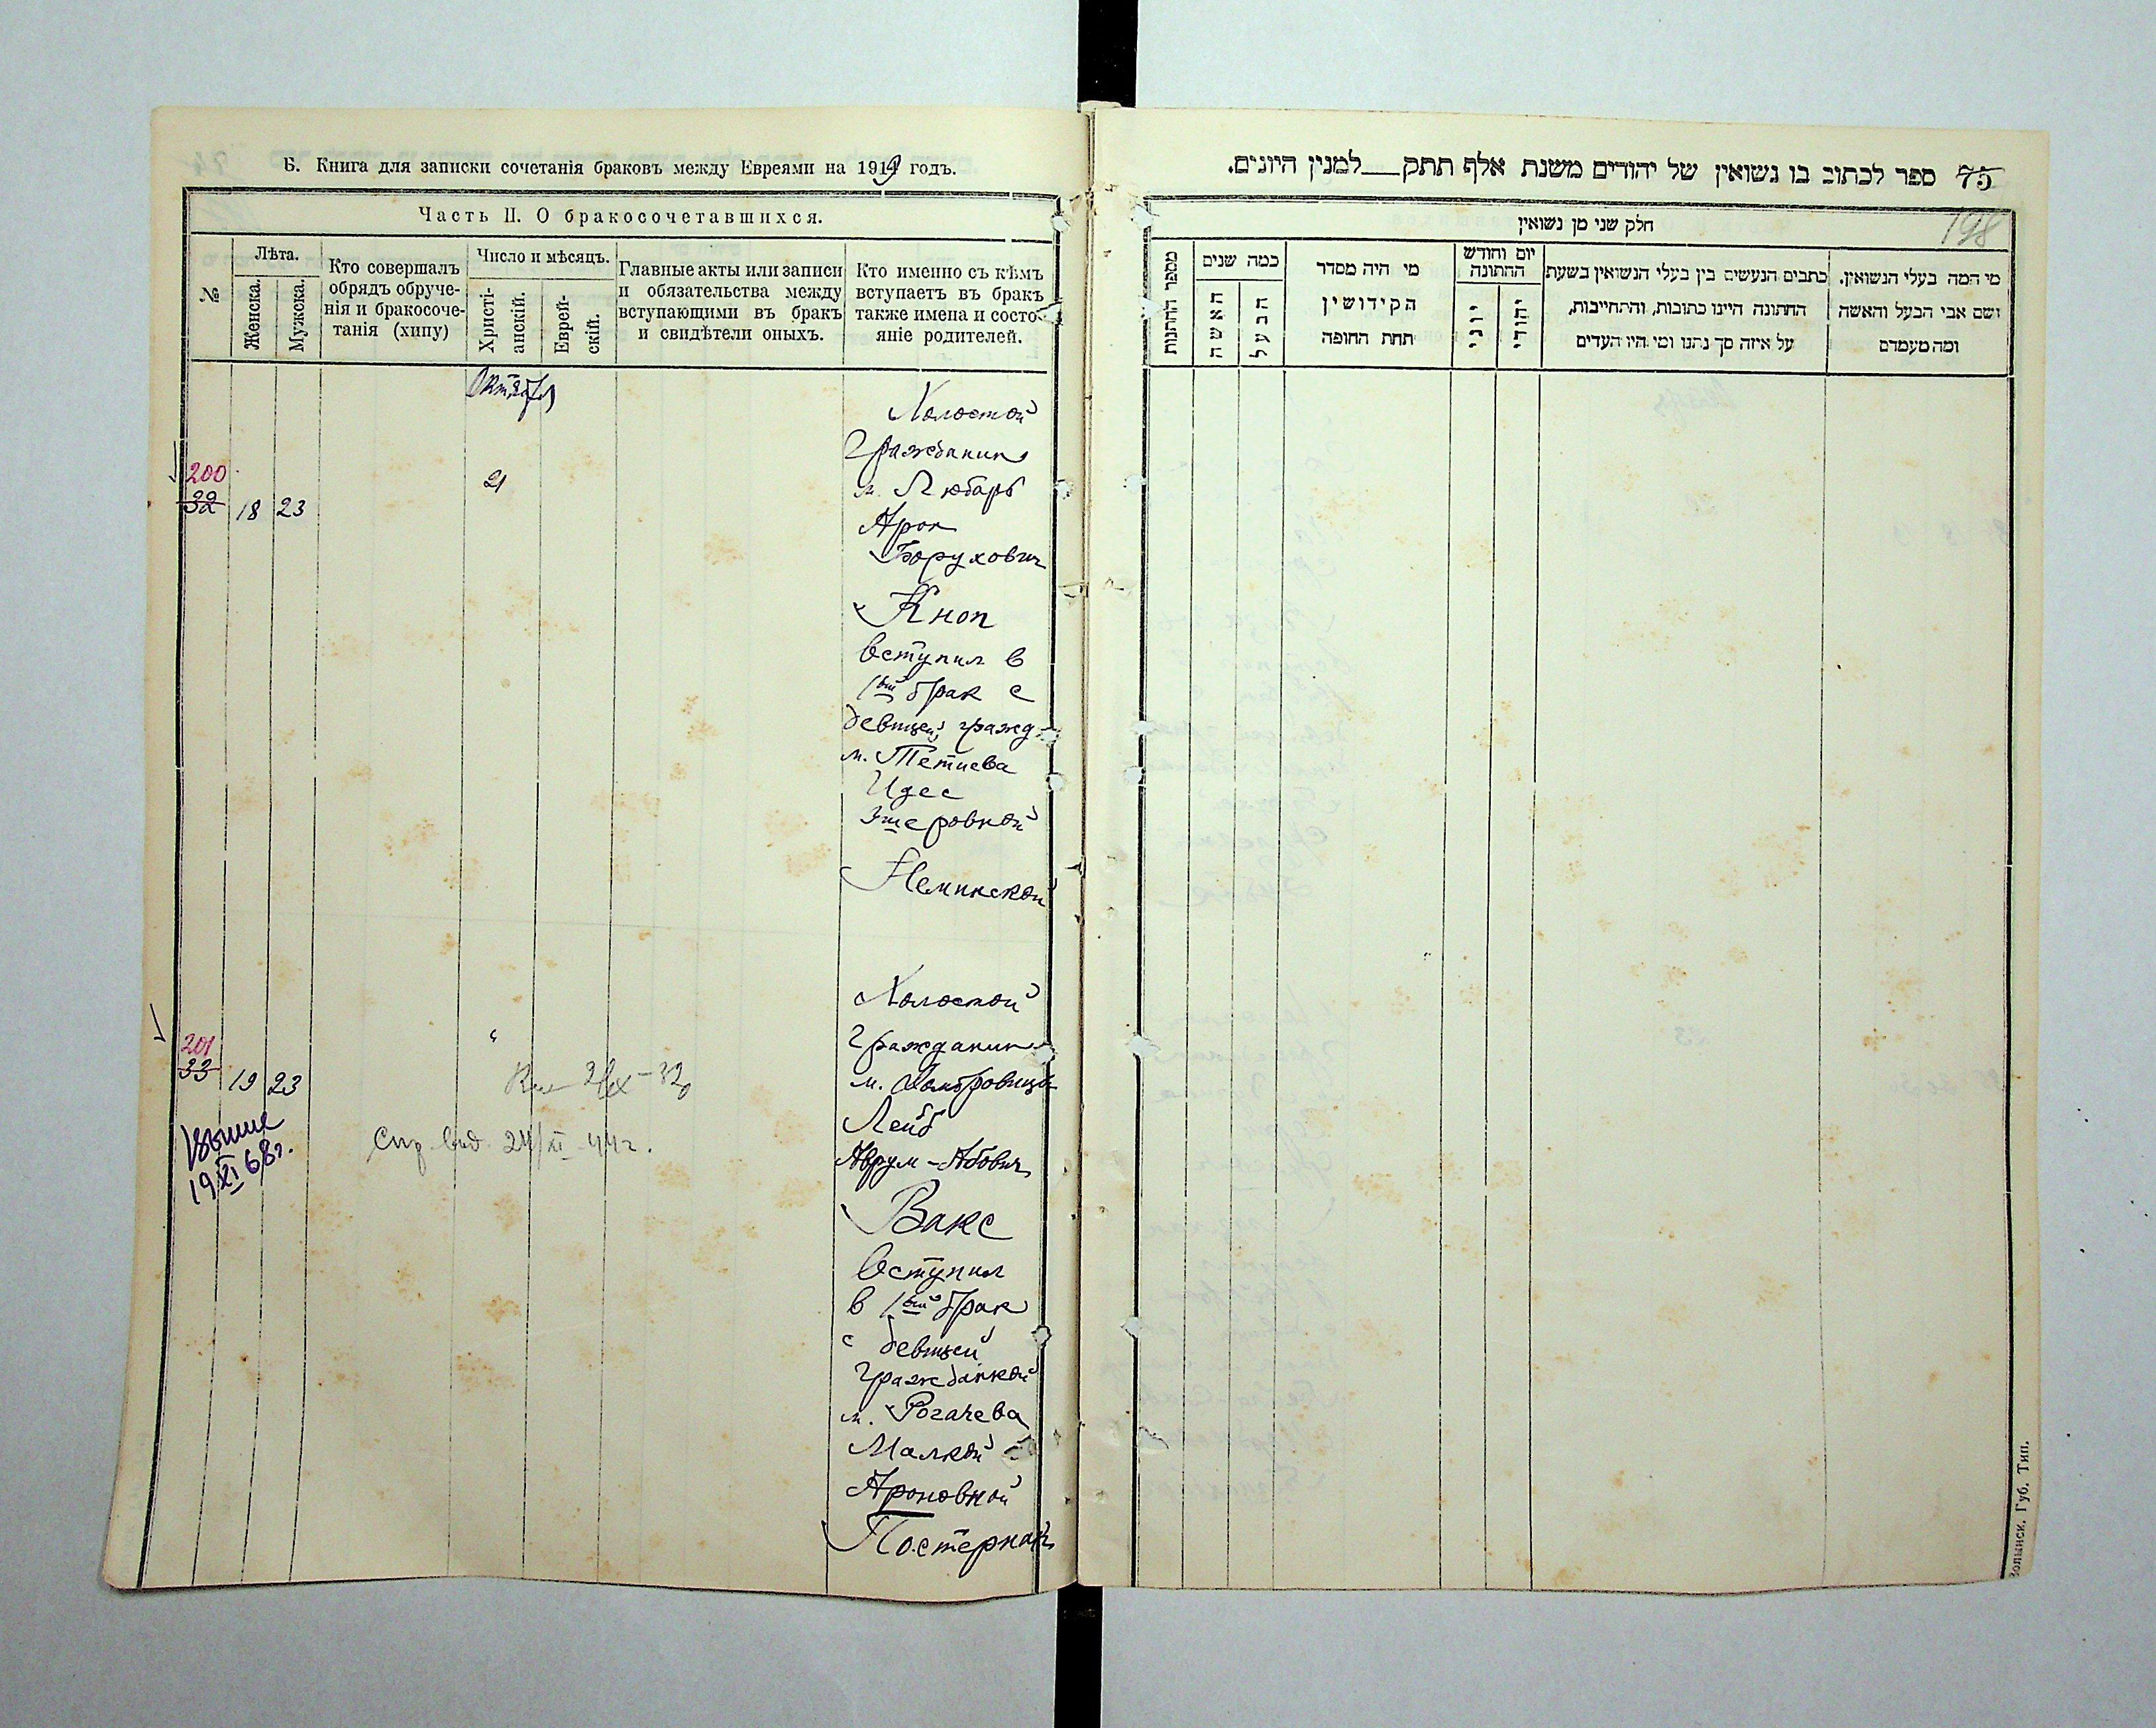 Б. Книга для записки сочетанія браковъ между Евреями на 1919 годъ.
Часть II. О бракосочетавшихся.
№
Лѣта.
Женска.
Мужска.
Кто совершалъ
обрядъ обруче-
нія и бракосоче-
танія (хипу)
Число и мѣсяцъ.
Христі-
анскій.
Еврей-
скій.
Главные акты или записи
и обязательства между
вступающими въ бракъ
и свидѣтели оныхъ.
Кто именно съ кѣмъ
вступаетъ въ бракъ
также имена и состо-
яніе родителей.
Октября
200
32
18
23
21
Холостой
Гражданин
м. Любарь
Арон
Борухович
Кноп
вступил в
1ый брак с
девицей гражд.
м. Тетиева
Идес
Эшеровной
Неминской
201
33
19
23
"
Холостой
Гражданин
м.
Лейб
Аврум-Абович
Вакс
вступил
в 1ый брак
с девицей
гражданкой
м. Рогачева
Малкой
Ароновной
Постернак
19 XI 68г.
Спр. выд. 24/XI-44г.
75 ספר לכתוב בו נשואין של יהודים משנת אלף תתק למנין היונים.
198
חלק שני מן נשואין
מספר החתונות
כמה שנים
האשה
הבעל
מי היה מסדר
הקידושין
תחת החופה
יום וחודש
החתונה
יוני
יהודי
כתבים הנעשים בין בעלי הנשואין בשעת
החתונה היינו כתובות, והתחייבות,
על איזה סך נתנו ומי היו העדים
מי המה בעלי הנשואין,
ושם אבי הבעל והאשה
ומה מעמדם
Волынск. Губ. Тип.